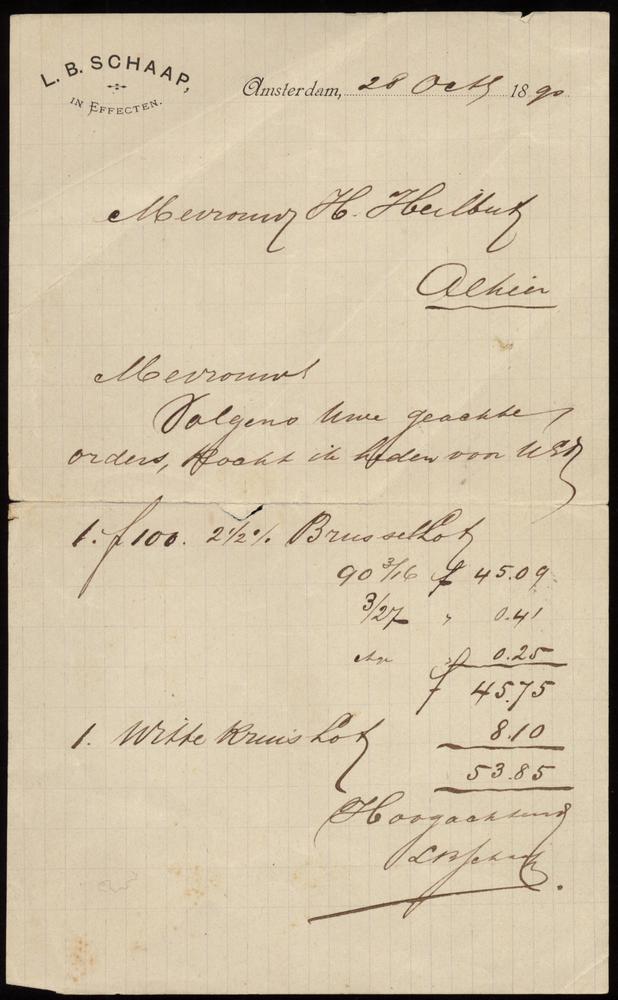 L. B. SCHAAP,
IN EFFECTEN.
Amsterdam, 28 Octr 1890
Mevrouw H. Heilbut
Alhier
Mevrouw!
Volgens Uwe geachte
orders, kocht ik heden voor UEd
1. f 100. 2½% Brussel Lot
90 3/16 f 45.09
3/27 " 0.41
" 0.25
f 45.75
1. Witte Kruis Lot 8.10
53.85
Hoogachtend
LBSchaap